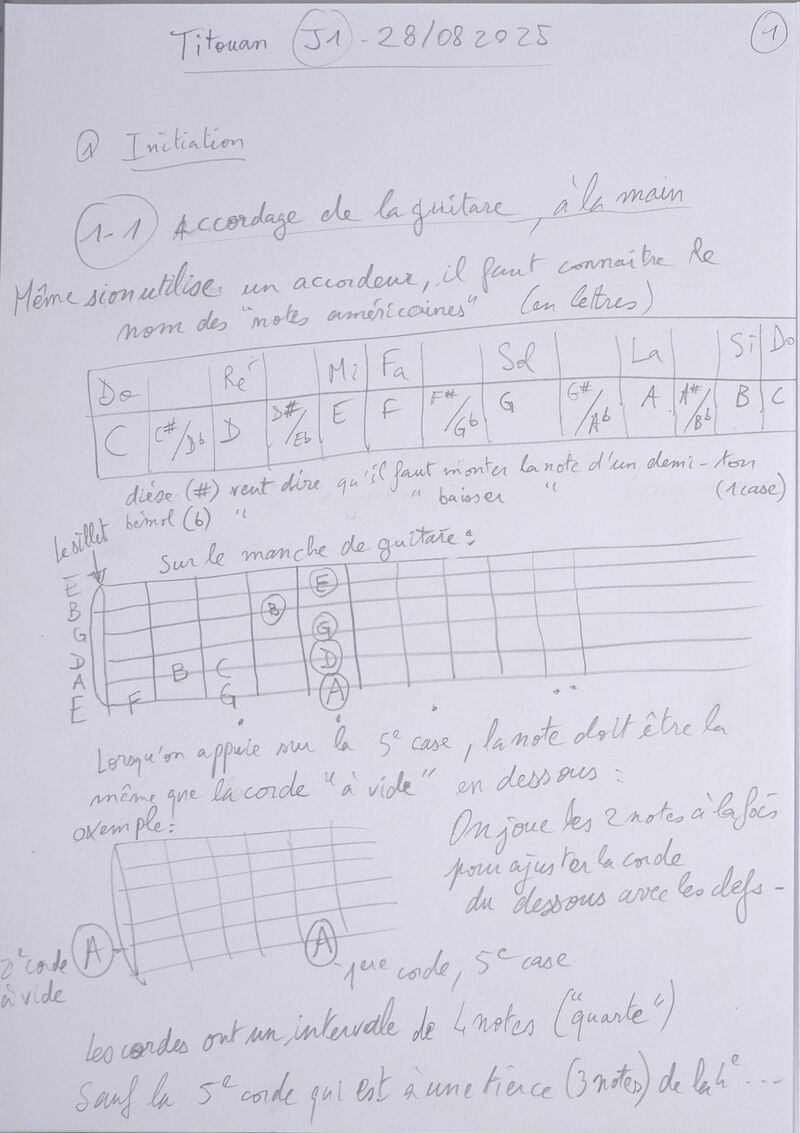 Titouan J1 - 28/08 2025
1
1 Initiation
1-1 Accordage de la guitare, à la main
Même si on utilise un accordeur, il faut connaitre le
nom des "notes américaines" (en lettres)
Do Ré Mi Fa Sol La Si Do
C C#/Db D D#/Eb E F F#/Gb G G#/Ab A A#/Bb B C
dièse (#) veut dire qu'il faut monter la note d'un demi-ton
bémol (b) " " baisser " (1 case)
Le sillet
Sur le manche de guitare :
E E
B B
G G
D D
A B C
E F G A
Lorsqu'on appuie sur la 5e case, la note doit être la
même que la corde "à vide" en dessous :
exemple :
On joue les 2 notes à la fois
pour ajuster la corde
du dessous avec les clefs -
A A
2e corde
à vide
1ère corde, 5e case
Les cordes ont un intervalle de 4 notes ("quarte")
Sauf la 5e corde qui est à une tierce (3 notes) de la 4e ...